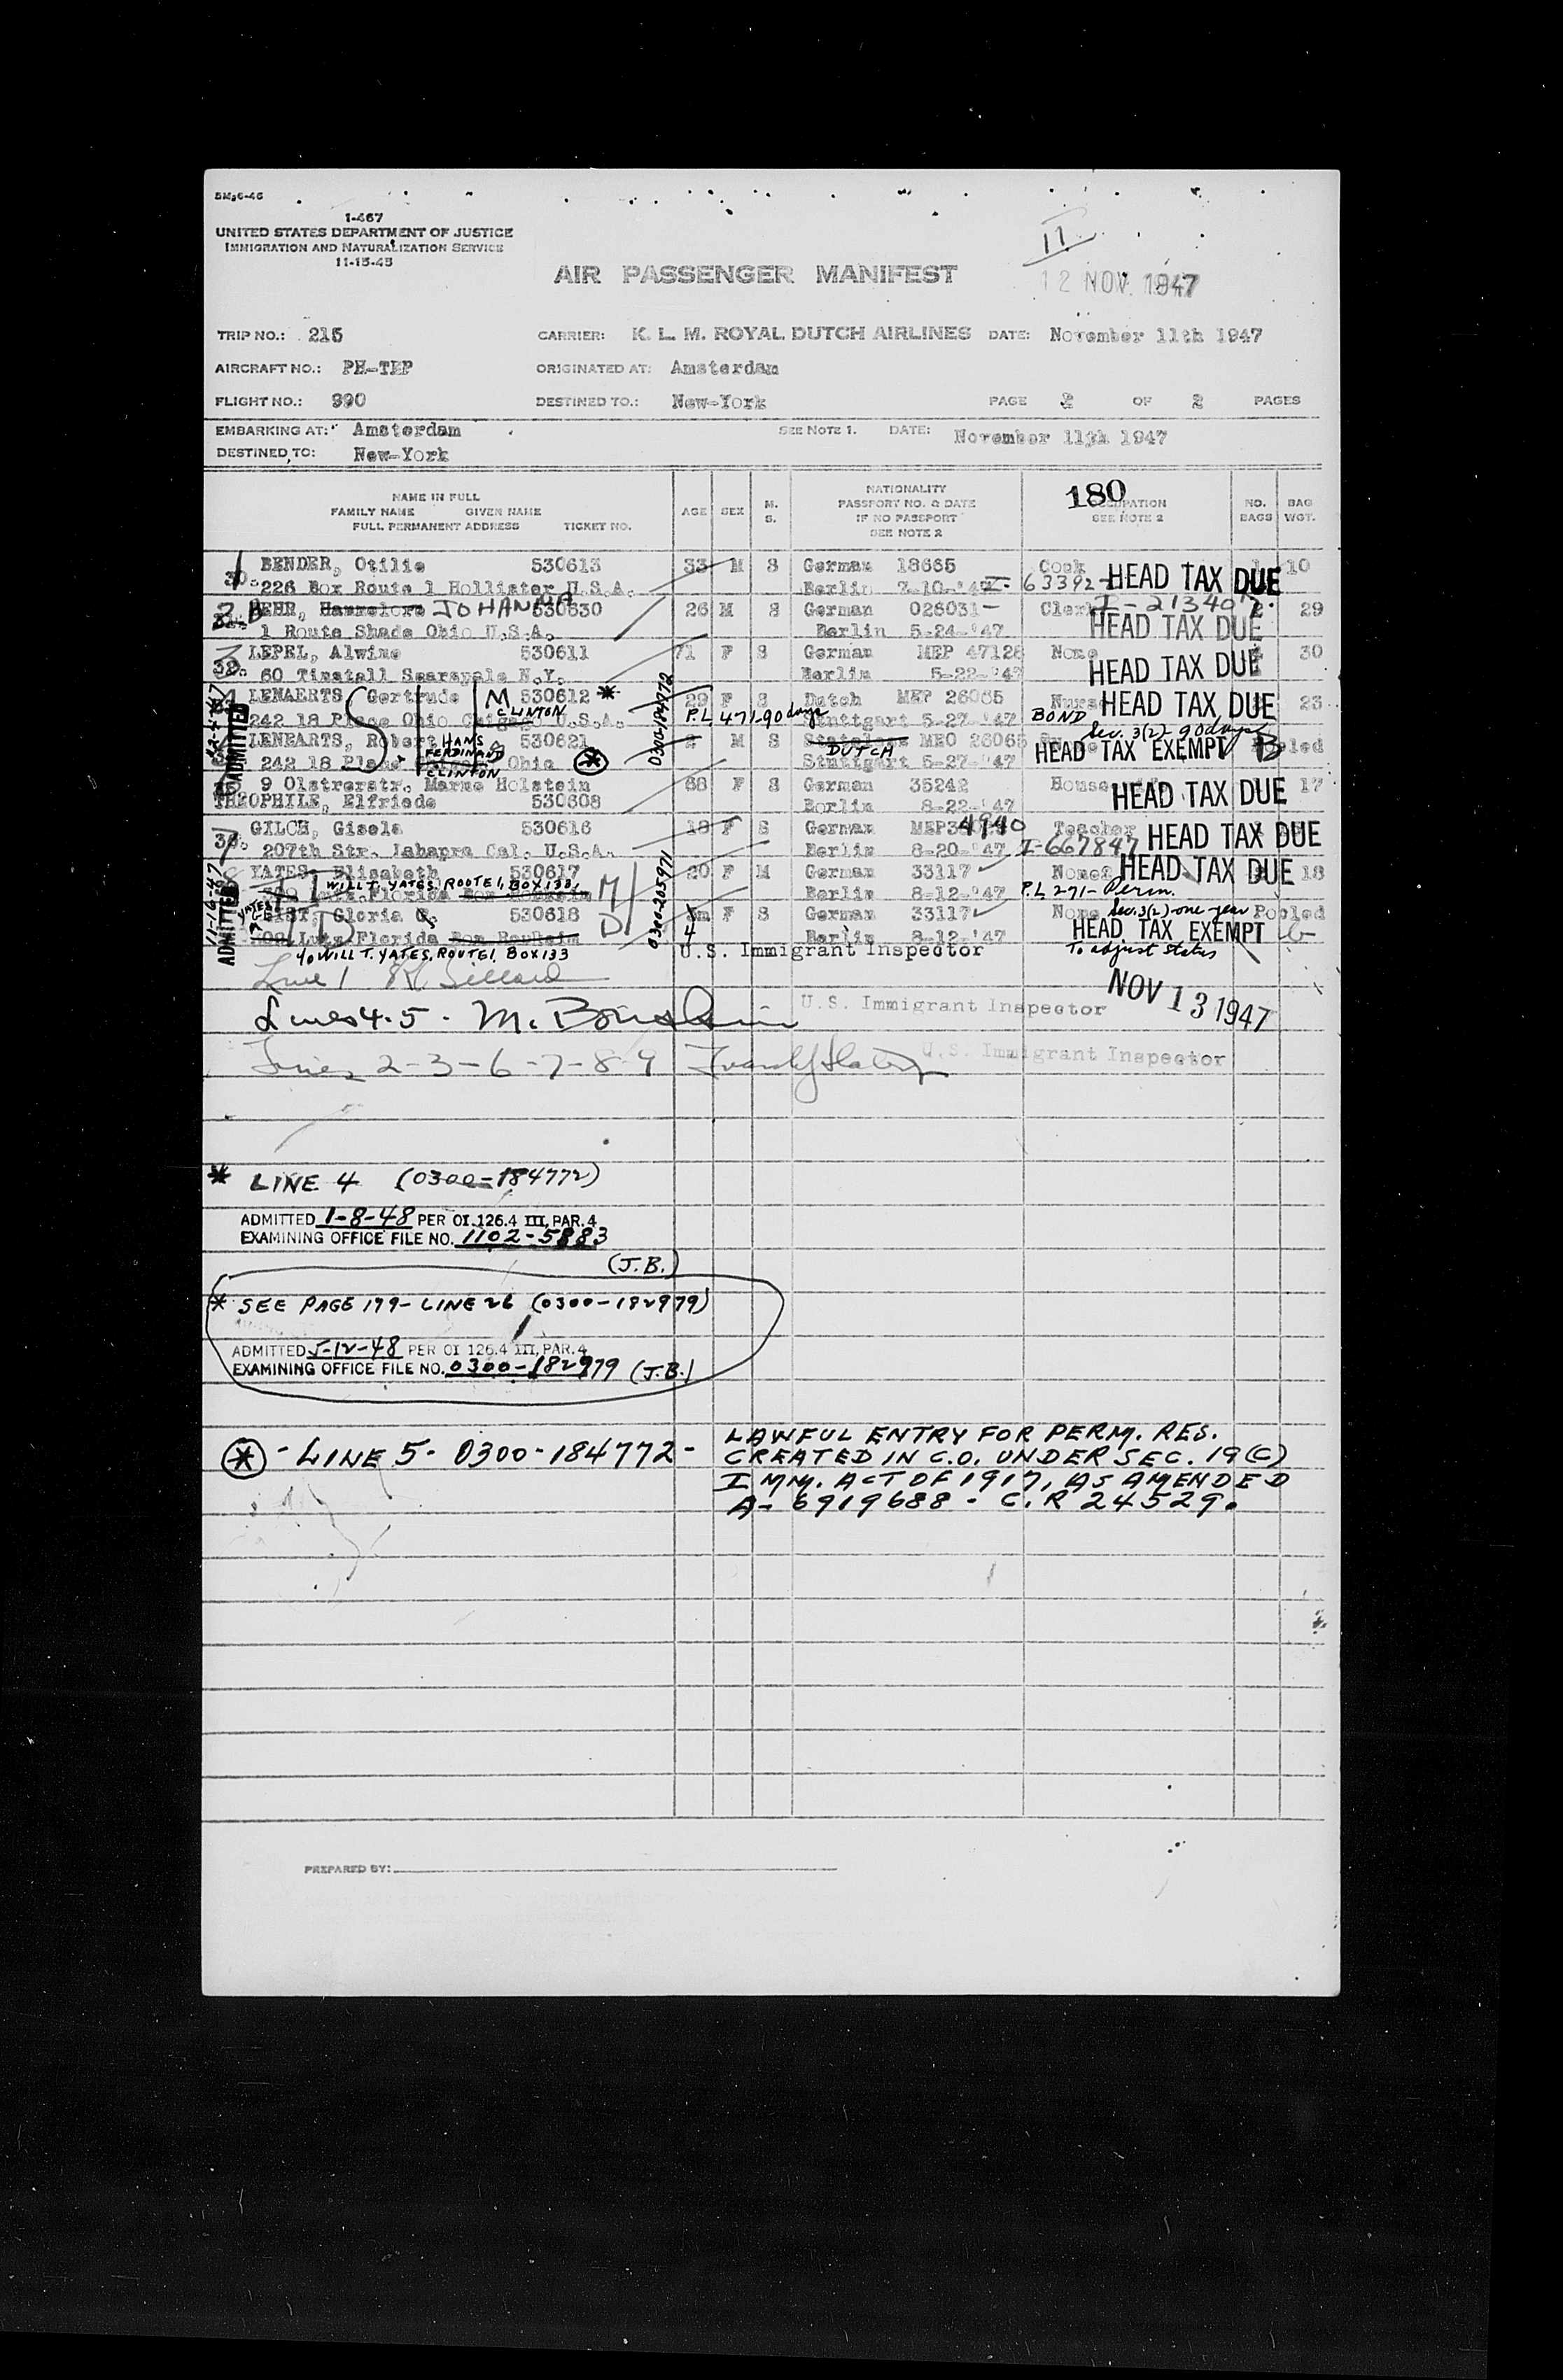 5M:6-46
1-467
UNITED STATES DEPARTMENT OF JUSTICE
IMMIGRATION AND NATURALIZATION SERVICE
11-15-45
II
AIR PASSENGER MANIFEST
12 NOV. 1947
TRIP NO.: 215 CARRIER: K. L. M. ROYAL DUTCH AIRLINES DATE: November 11th 1947
AIRCRAFT NO.: PH-TEP ORIGINATED AT: Amsterdam
FLIGHT NO.: 990 DESTINED TO.: New-York PAGE 2 OF 2 PAGES
EMBARKING AT: Amsterdam SEE NOTE 1. DATE: November 11th 1947
DESTINED TO: New-York
NAME IN FULL
FAMILY NAME GIVEN NAME
FULL PERMANENT ADDRESS TICKET NO.
AGE SEX M. S.
NATIONALITY
PASSPORT NO. & DATE
IF NO PASSPORT
SEE NOTE 2
180
OCCUPATION
SEE NOTE 2
NO. BAGS BAG WGT.
1 BENDER, Otilie 530613 33 M S German 18665 Cook 1 10
226 Box Route 1 Hollister U.S.A. Berlin 7-10-'47 I-63392- HEAD TAX DUE
2 BEHR, Hannelore JOHANNA 530630 26 M S German 028031- Clerk I-213407 2 29
1 Route Shade Ohio U.S.A. Berlin 5-24-'47 HEAD TAX DUE
3 LEPEL, Alwine 530611 71 F S German MEP 47128 None 30
60 Tinstall Scarsyale N.Y. Berlin 5-22-'47 HEAD TAX DUE
4 LENAERTS Gertrude M 530612 * 29 F S Dutch MEP 26065 Nurse HEAD TAX DUE 23
CLINTON
242 18 Place Ohio U.S.A. P.L. 471-90 days Stuttgart 5-27-'47 BOND Sec. 3(2) 90 days
LENEARTS, Robert HANS FERDINAND 530621 2 M S Stateless MEO 26065 HEAD TAX EXEMPT Pooled
DUTCH
242 18 Place CLINTON Ohio Stuttgart 5-27-'47
0300-184772
ADMITTED
9 Olstrerstr. Marne Holstein 68 F S German 35242 House HEAD TAX DUE 17
THEOPHILE, Elfriede 530608 Berlin 8-22-'47
GILCH, Gisela 530616 18 F S German MEP 4940 Teacher HEAD TAX DUE
207th Str. Labapra Cal. U.S.A. Berlin 8-20-'47 I-667847
YATES Elisabeth 530617 20 F M German 33117 None HEAD TAX DUE 18
WILL T. YATES, ROUTE 1, BOX 133, Florida M Berlin 8-12-'47 P.L. 271-Perm.
YATES
GEIST, Gloria G. 530618 4 F S German 33117 None Sec. 3(2)-one year Pooled
Lutz Florida D Berlin 8-12-'47 HEAD TAX EXEMPT
c/o WILL T. YATES, ROUTE 1, BOX 133 To adjust status
11-16-47
ADMITTED
0300-205971
U.S. Immigrant Inspector
Line 1
NOV 13 1947
Lines 4-5. U.S. Immigrant Inspector
Lines 2-3-6-7-8-9 U.S. Immigrant Inspector
* LINE 4 (0300-184772)
ADMITTED 1-8-48 PER OI 126.4 III, PAR. 4
EXAMINING OFFICE FILE NO. 1102-5883
(J.B.)
* SEE PAGE 179- LINE 26 (0300-182979)
ADMITTED 5-12-48 PER OI 126.4 III, PAR. 4
EXAMINING OFFICE FILE NO. 0300-182979 (J.B.)
* - LINE 5- 0300-184772- LAWFUL ENTRY FOR PERM. RES.
CREATED IN C.O. UNDER SEC. 19(C)
IMM. ACT OF 1917, AS AMENDED
A- 6919688 - C.R 24529.
PREPARED BY: